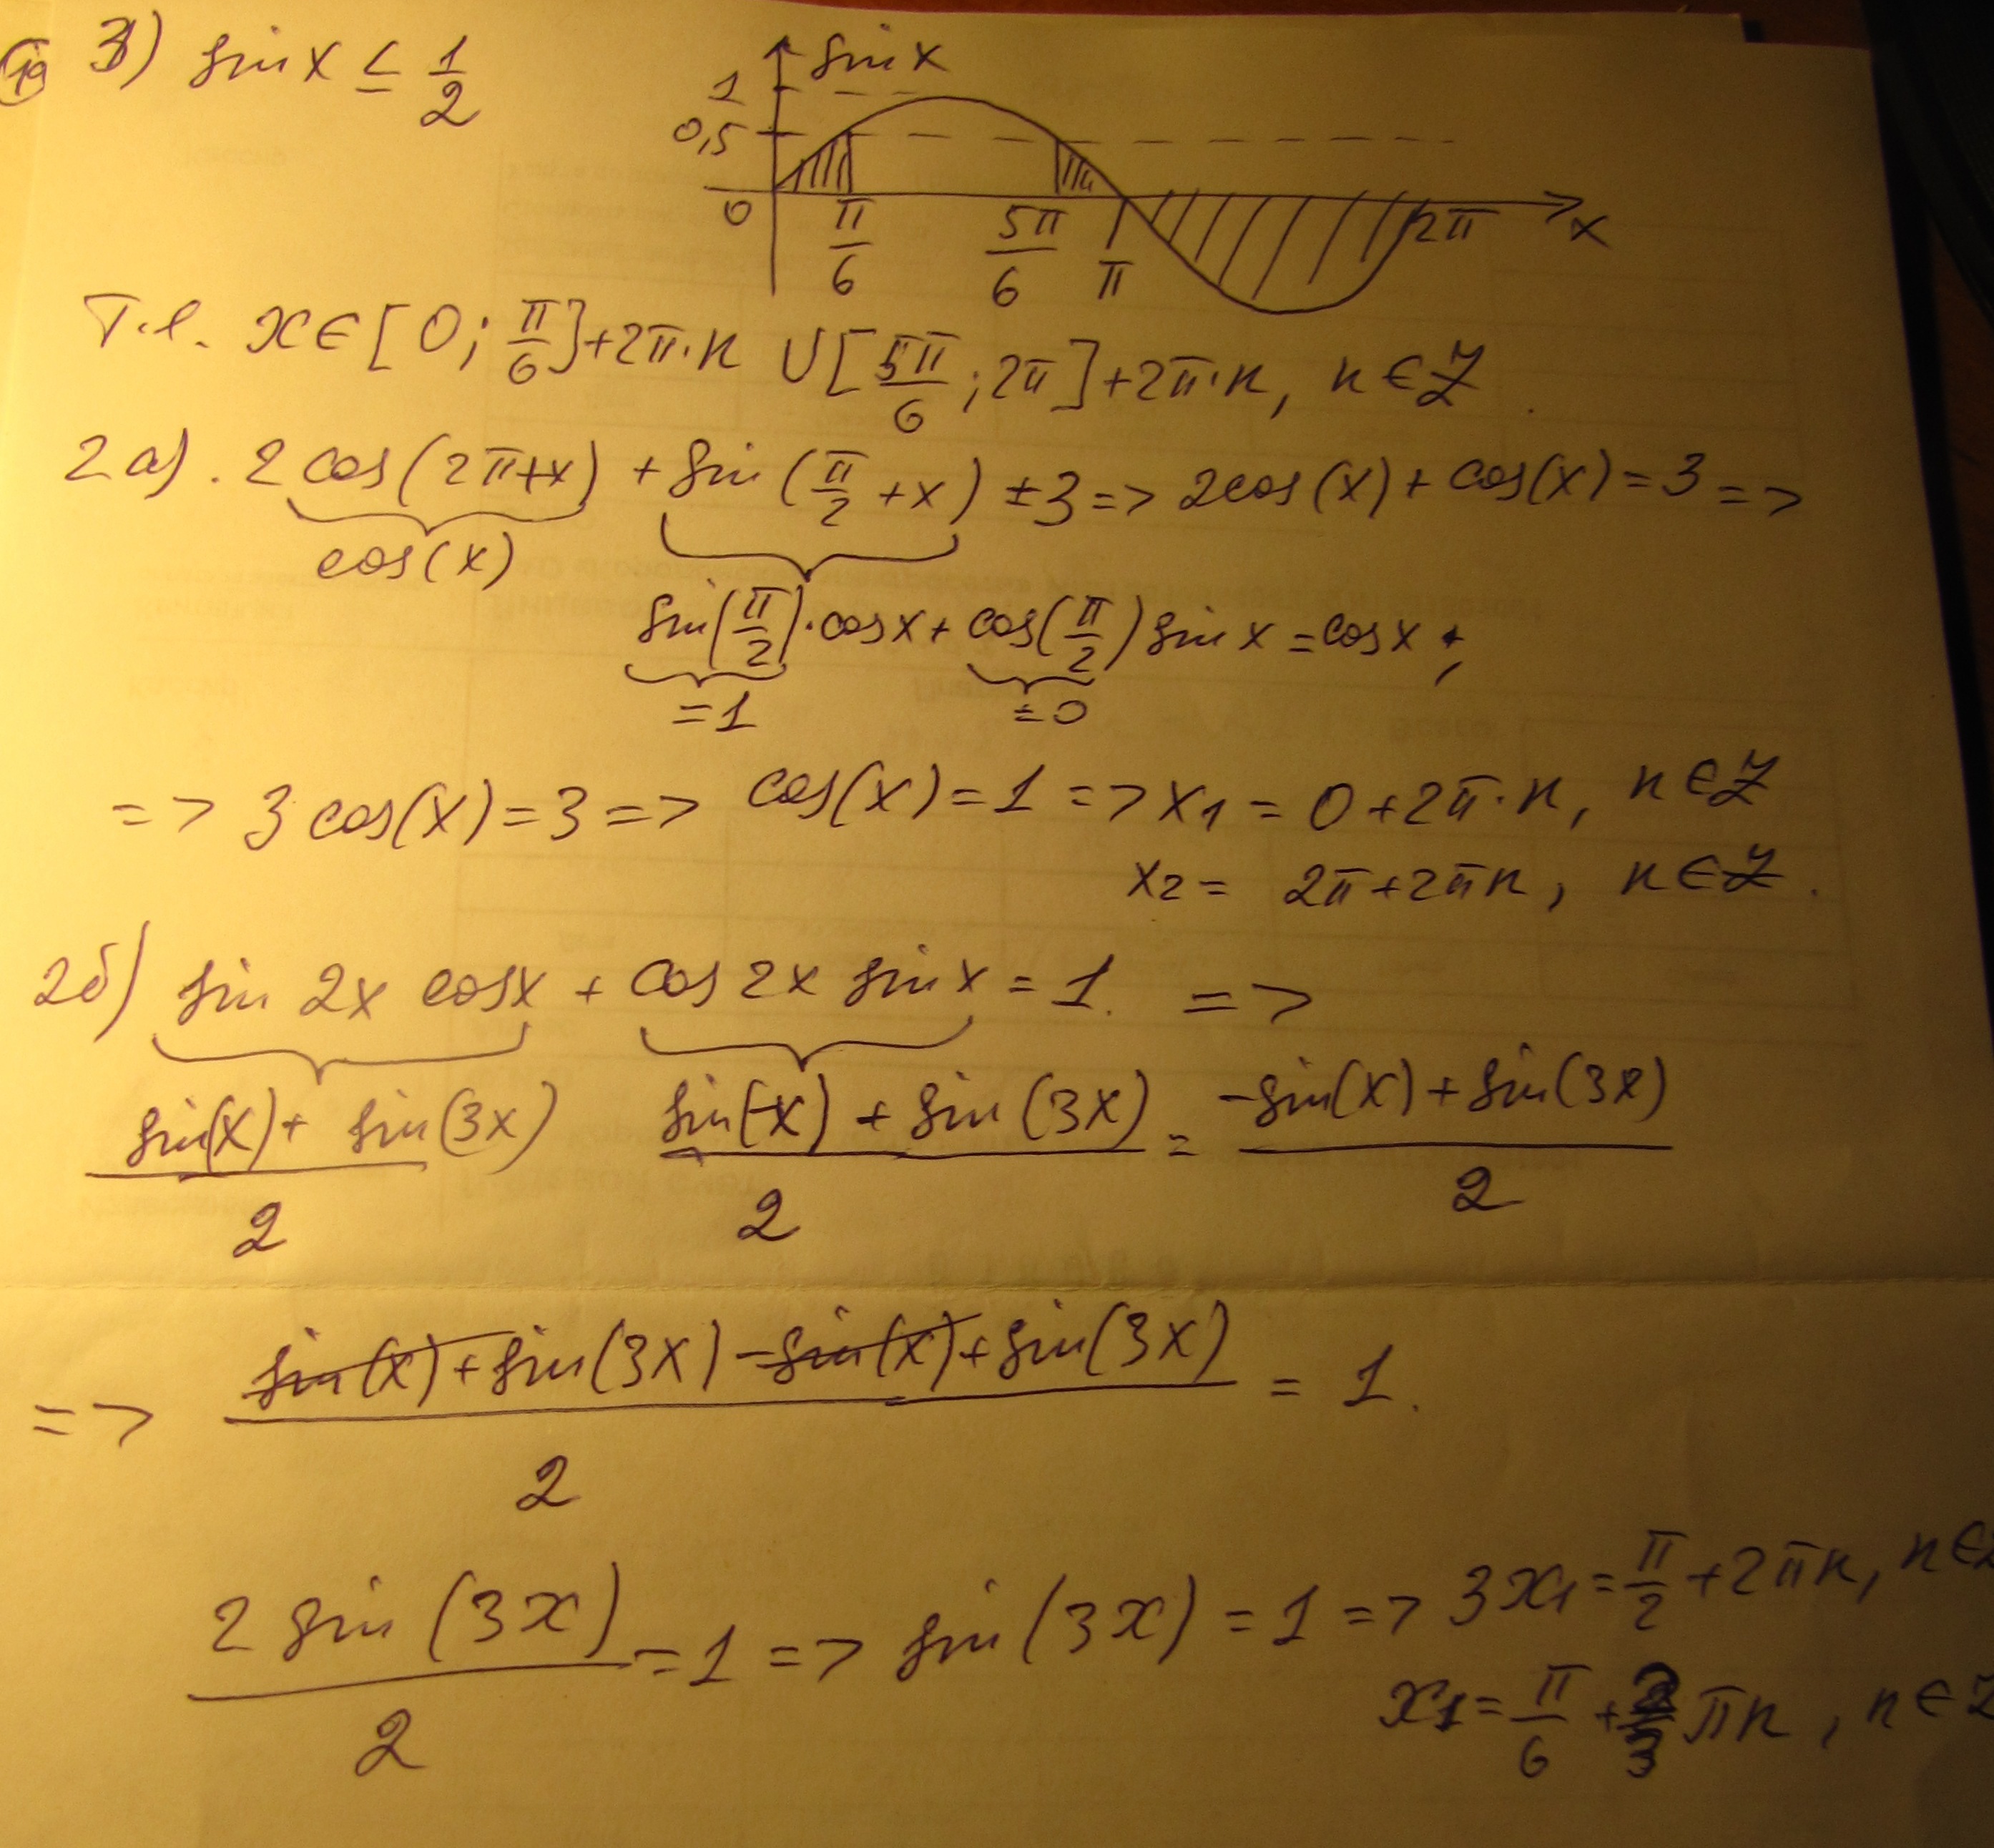 19 3) sin x ≤ 1/2
sin x
1
0,5
0 π/6 5π/6 π 2π x
Т.е. x ∈ [0; π/6] + 2π·n ∪ [5π/6; 2π] + 2π·n, n ∈ Z.
2а). 2 cos(2π+x) + sin(π/2 + x) = 3 => 2cos(x) + cos(x) = 3 =>
cos(x)
sin(π/2)·cos x + cos(π/2) sin x = cos x;
=1 =0
=> 3 cos(x) = 3 => cos(x) = 1 => x1 = 0 + 2π·n, n ∈ Z
x2 = 2π + 2πn, n ∈ Z.
2б) sin 2x cos x + cos 2x sin x = 1. =>
(sin(x) + sin(3x))/2 (sin(-x) + sin(3x))/2 = (-sin(x) + sin(3x))/2
=> (sin(x) + sin(3x) - sin(x) + sin(3x))/2 = 1.
2 sin(3x)/2 = 1 => sin(3x) = 1 => 3x1 = π/2 + 2πn, n ∈ Z
x1 = π/6 + 2/3 πn, n ∈ Z